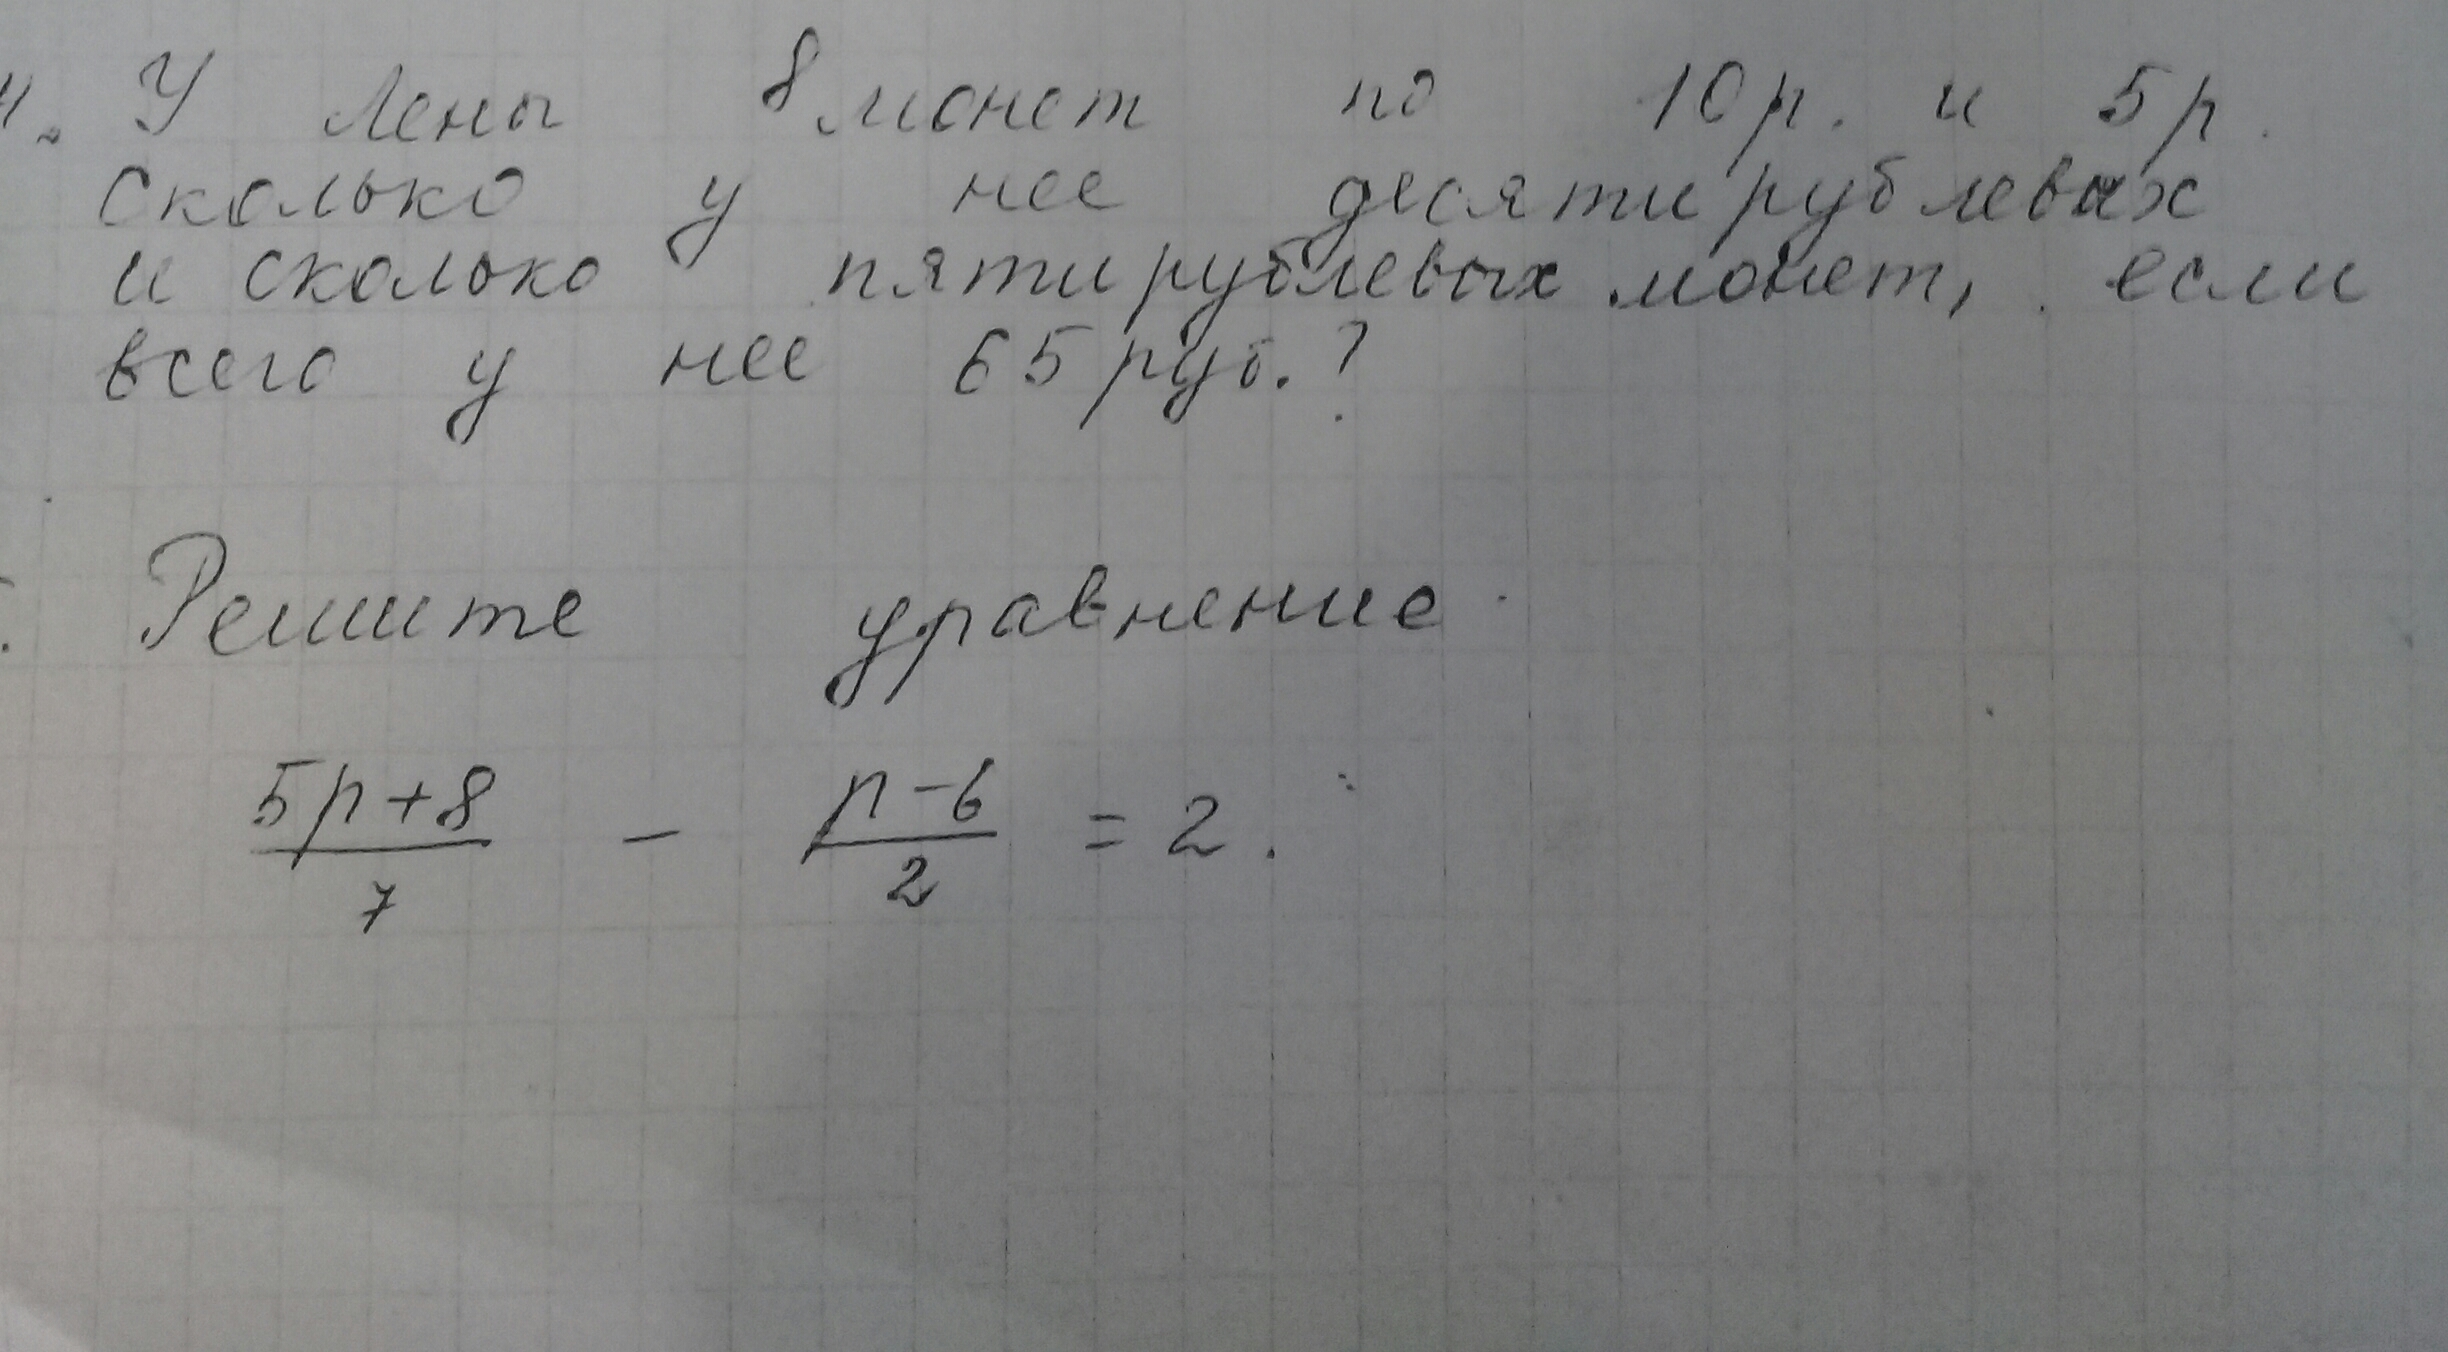 4. У Лены 8 монет по 10 р. и 5 р.
Сколько у нее десятирублевых
и сколько пятирублевых монет, если
всего у нее 65 руб.?
Решите уравнение
5p+8 / 7 - p-6 / 2 = 2.